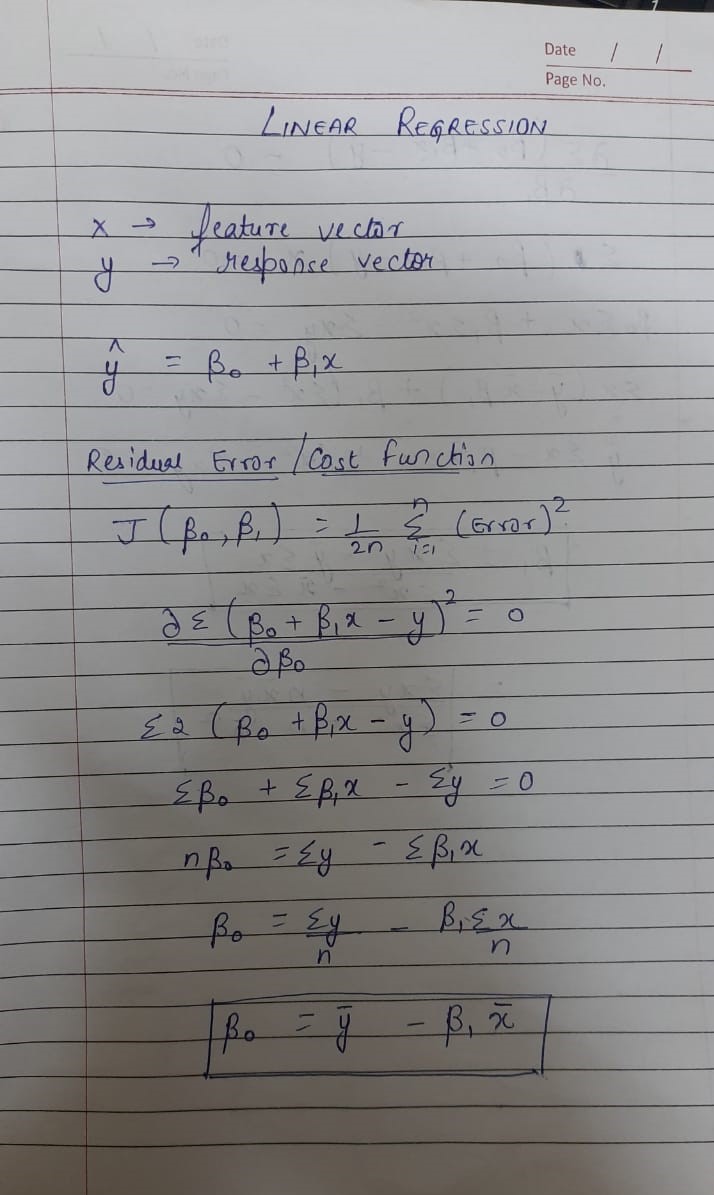 Date / /
Page No.
LINEAR REGRESSION
x → feature vector
y → response vector
ŷ = β₀ + β₁x
Residual Error / Cost function
J (β₀, β₁) = 1/2n Σⁿᵢ₌₁ (Error)²
∂Σ (β₀ + β₁x - y)² / ∂β₀ = 0
Σ2 (β₀ + β₁x - y) = 0
Σβ₀ + Σβ₁x - Σy = 0
nβ₀ = Σy - Σβ₁x
β₀ = Σy/n - β₁Σx/n
β₀ = ȳ - β₁x̄